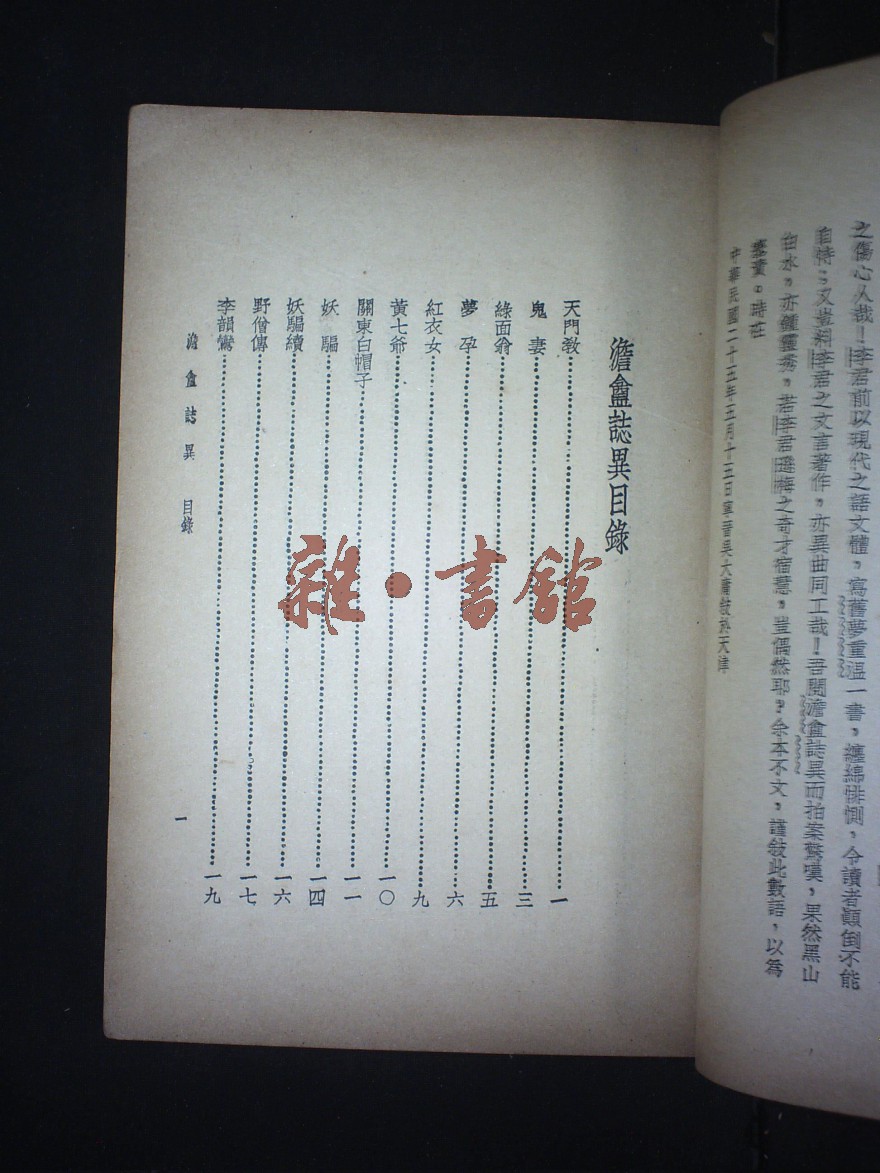 之傷心人哉！李君前以現代之語文體，寫舊夢重溫一書，纏綿悱惻，令讀者顛倒不能
自恃；又豈料李君之文言著作，亦異曲同工哉！吾閱澹盦誌異而拍案驚嘆，果然黑山
白水，亦鍾靈秀，若李君之奇才宿慧，豈偶然耶？余本不文，謹敍此數語，以為
塞責。時在
中華民國二十五年三月十三日寧晉吳大猷敍於天津
澹盦誌異目錄
天門教 一
鬼妻 三
綠面翁 五
夢孕 六
紅衣女 九
黃七爺 一〇
關東白帽子 一一
妖騙 一四
妖騙續 一六
野僧傳 一七
李韻鸞 一九
澹盦誌異 目錄
一
雜·書館